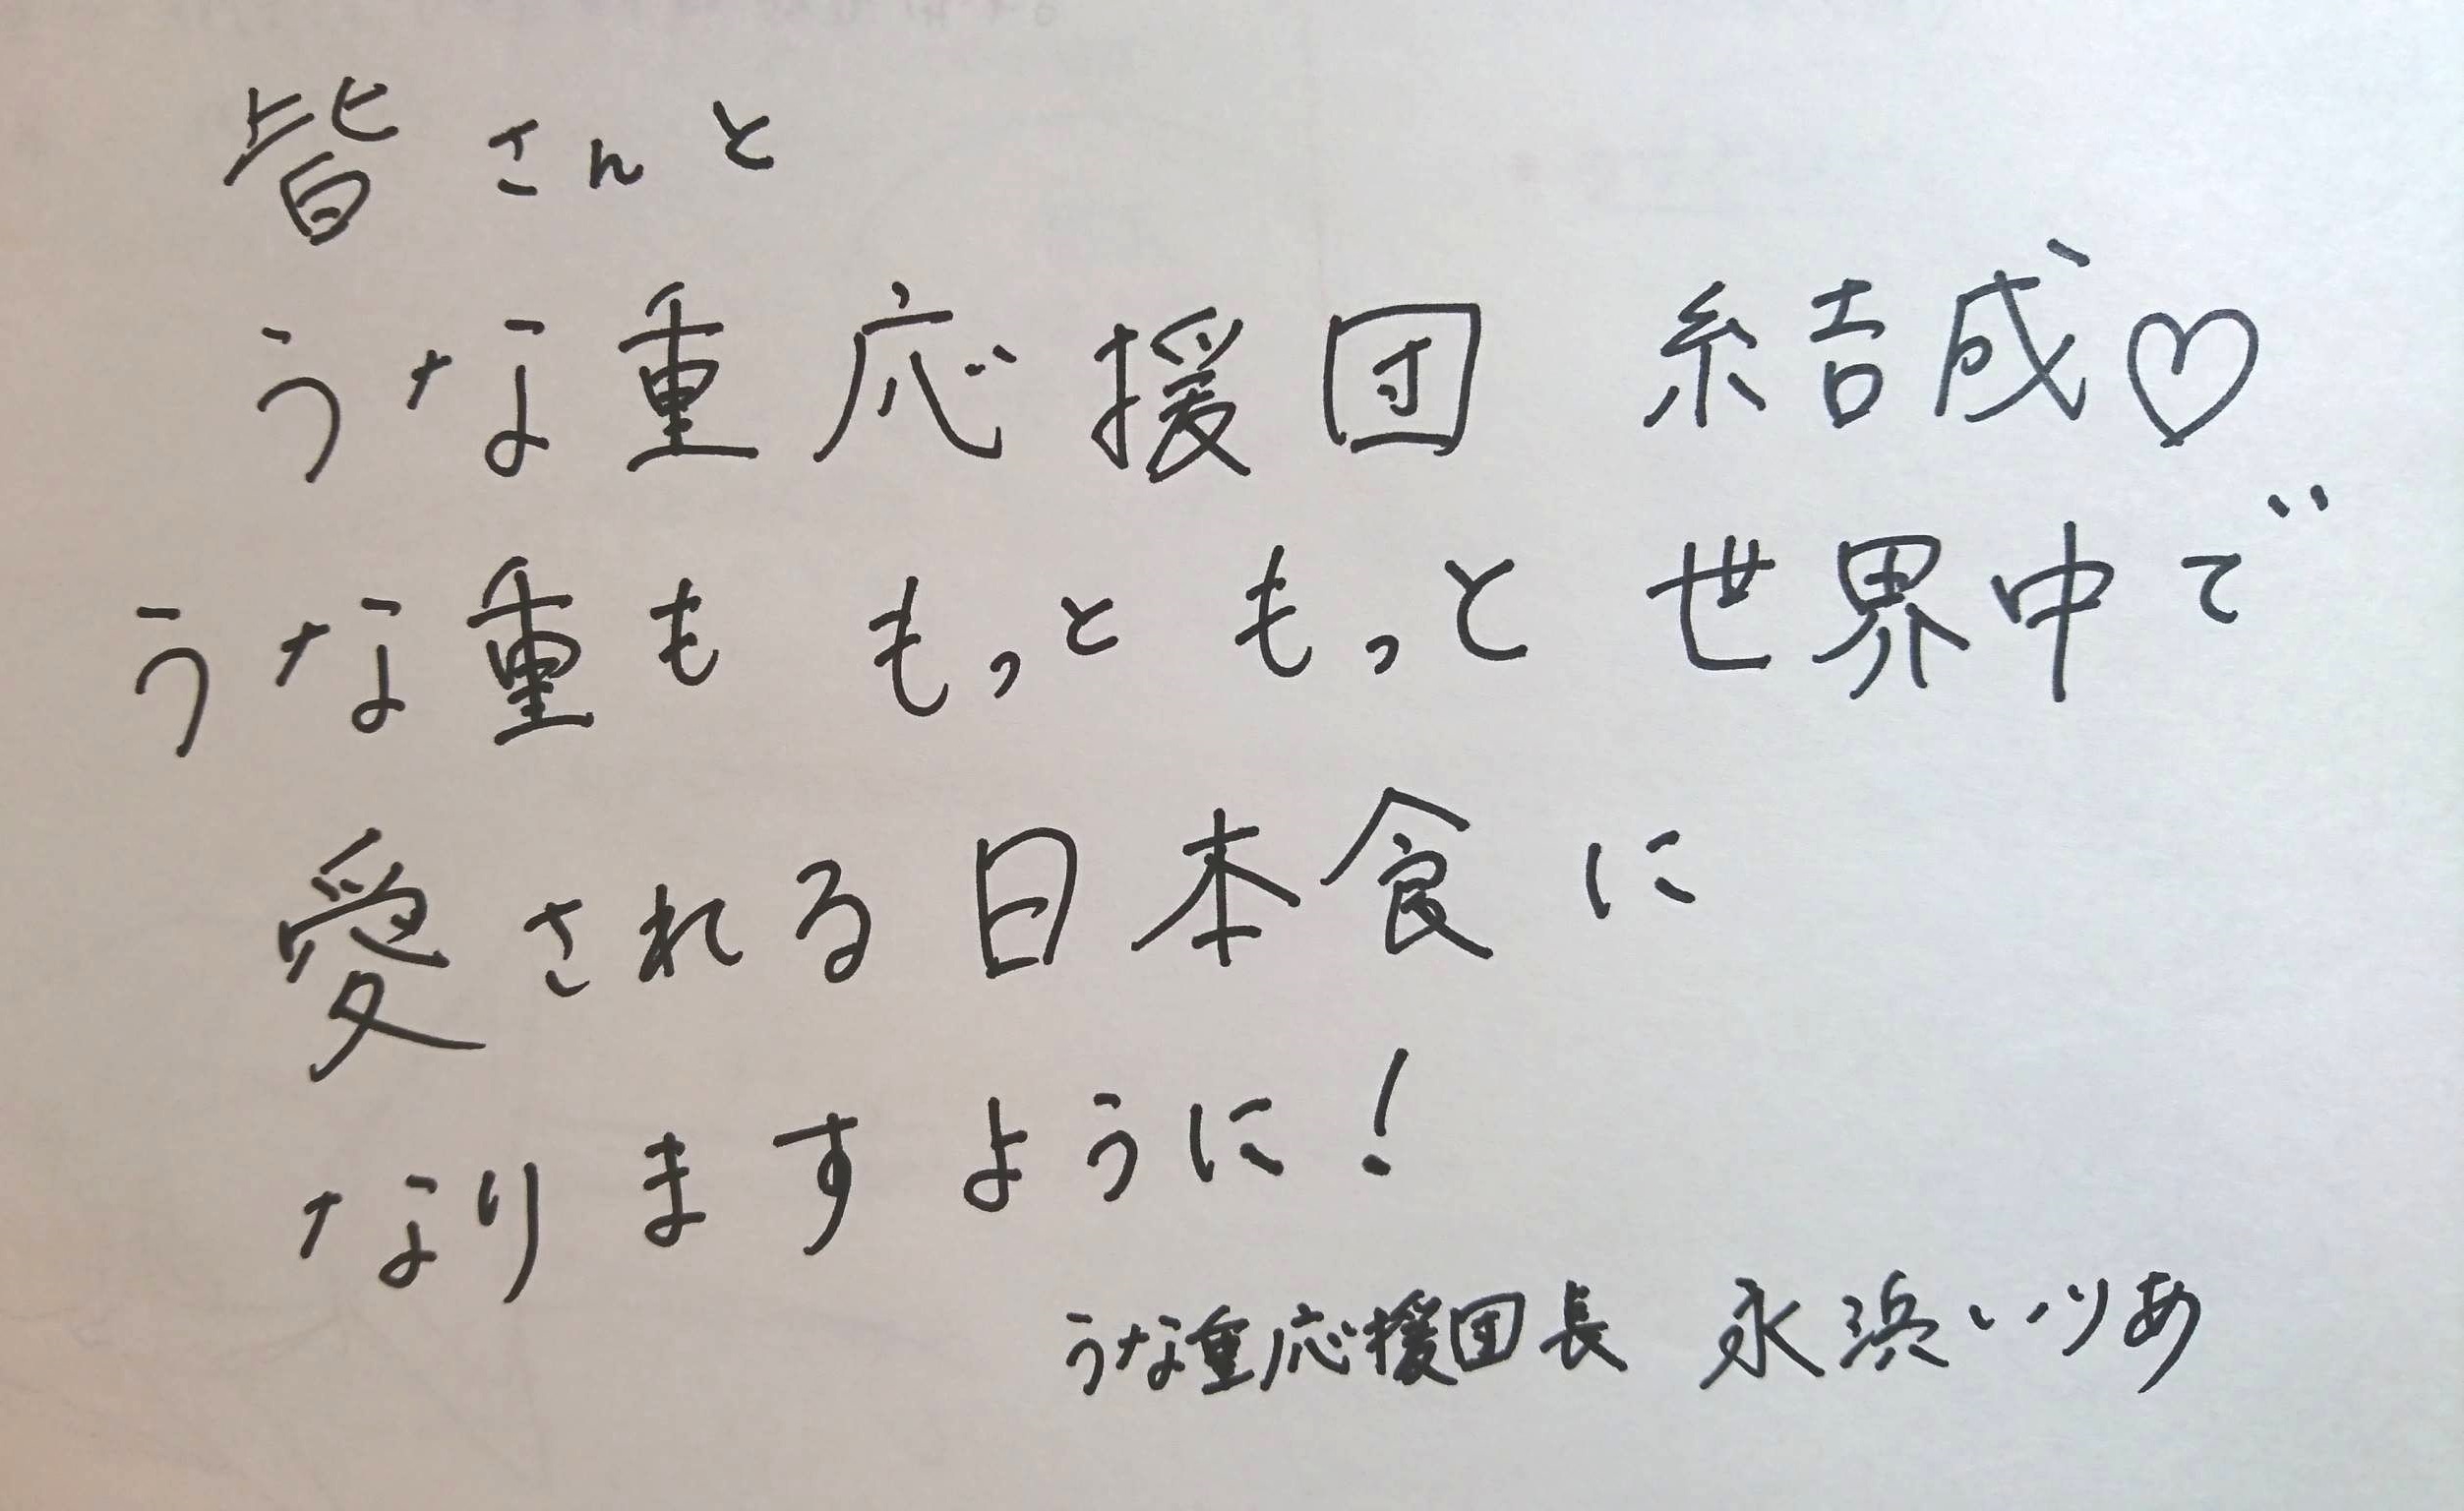 皆さんと
うな重応援団 結成♡
うな重も もっと もっと 世界中で
愛される日本食に
なりますように!
うな重応援団長 永浜いりあ